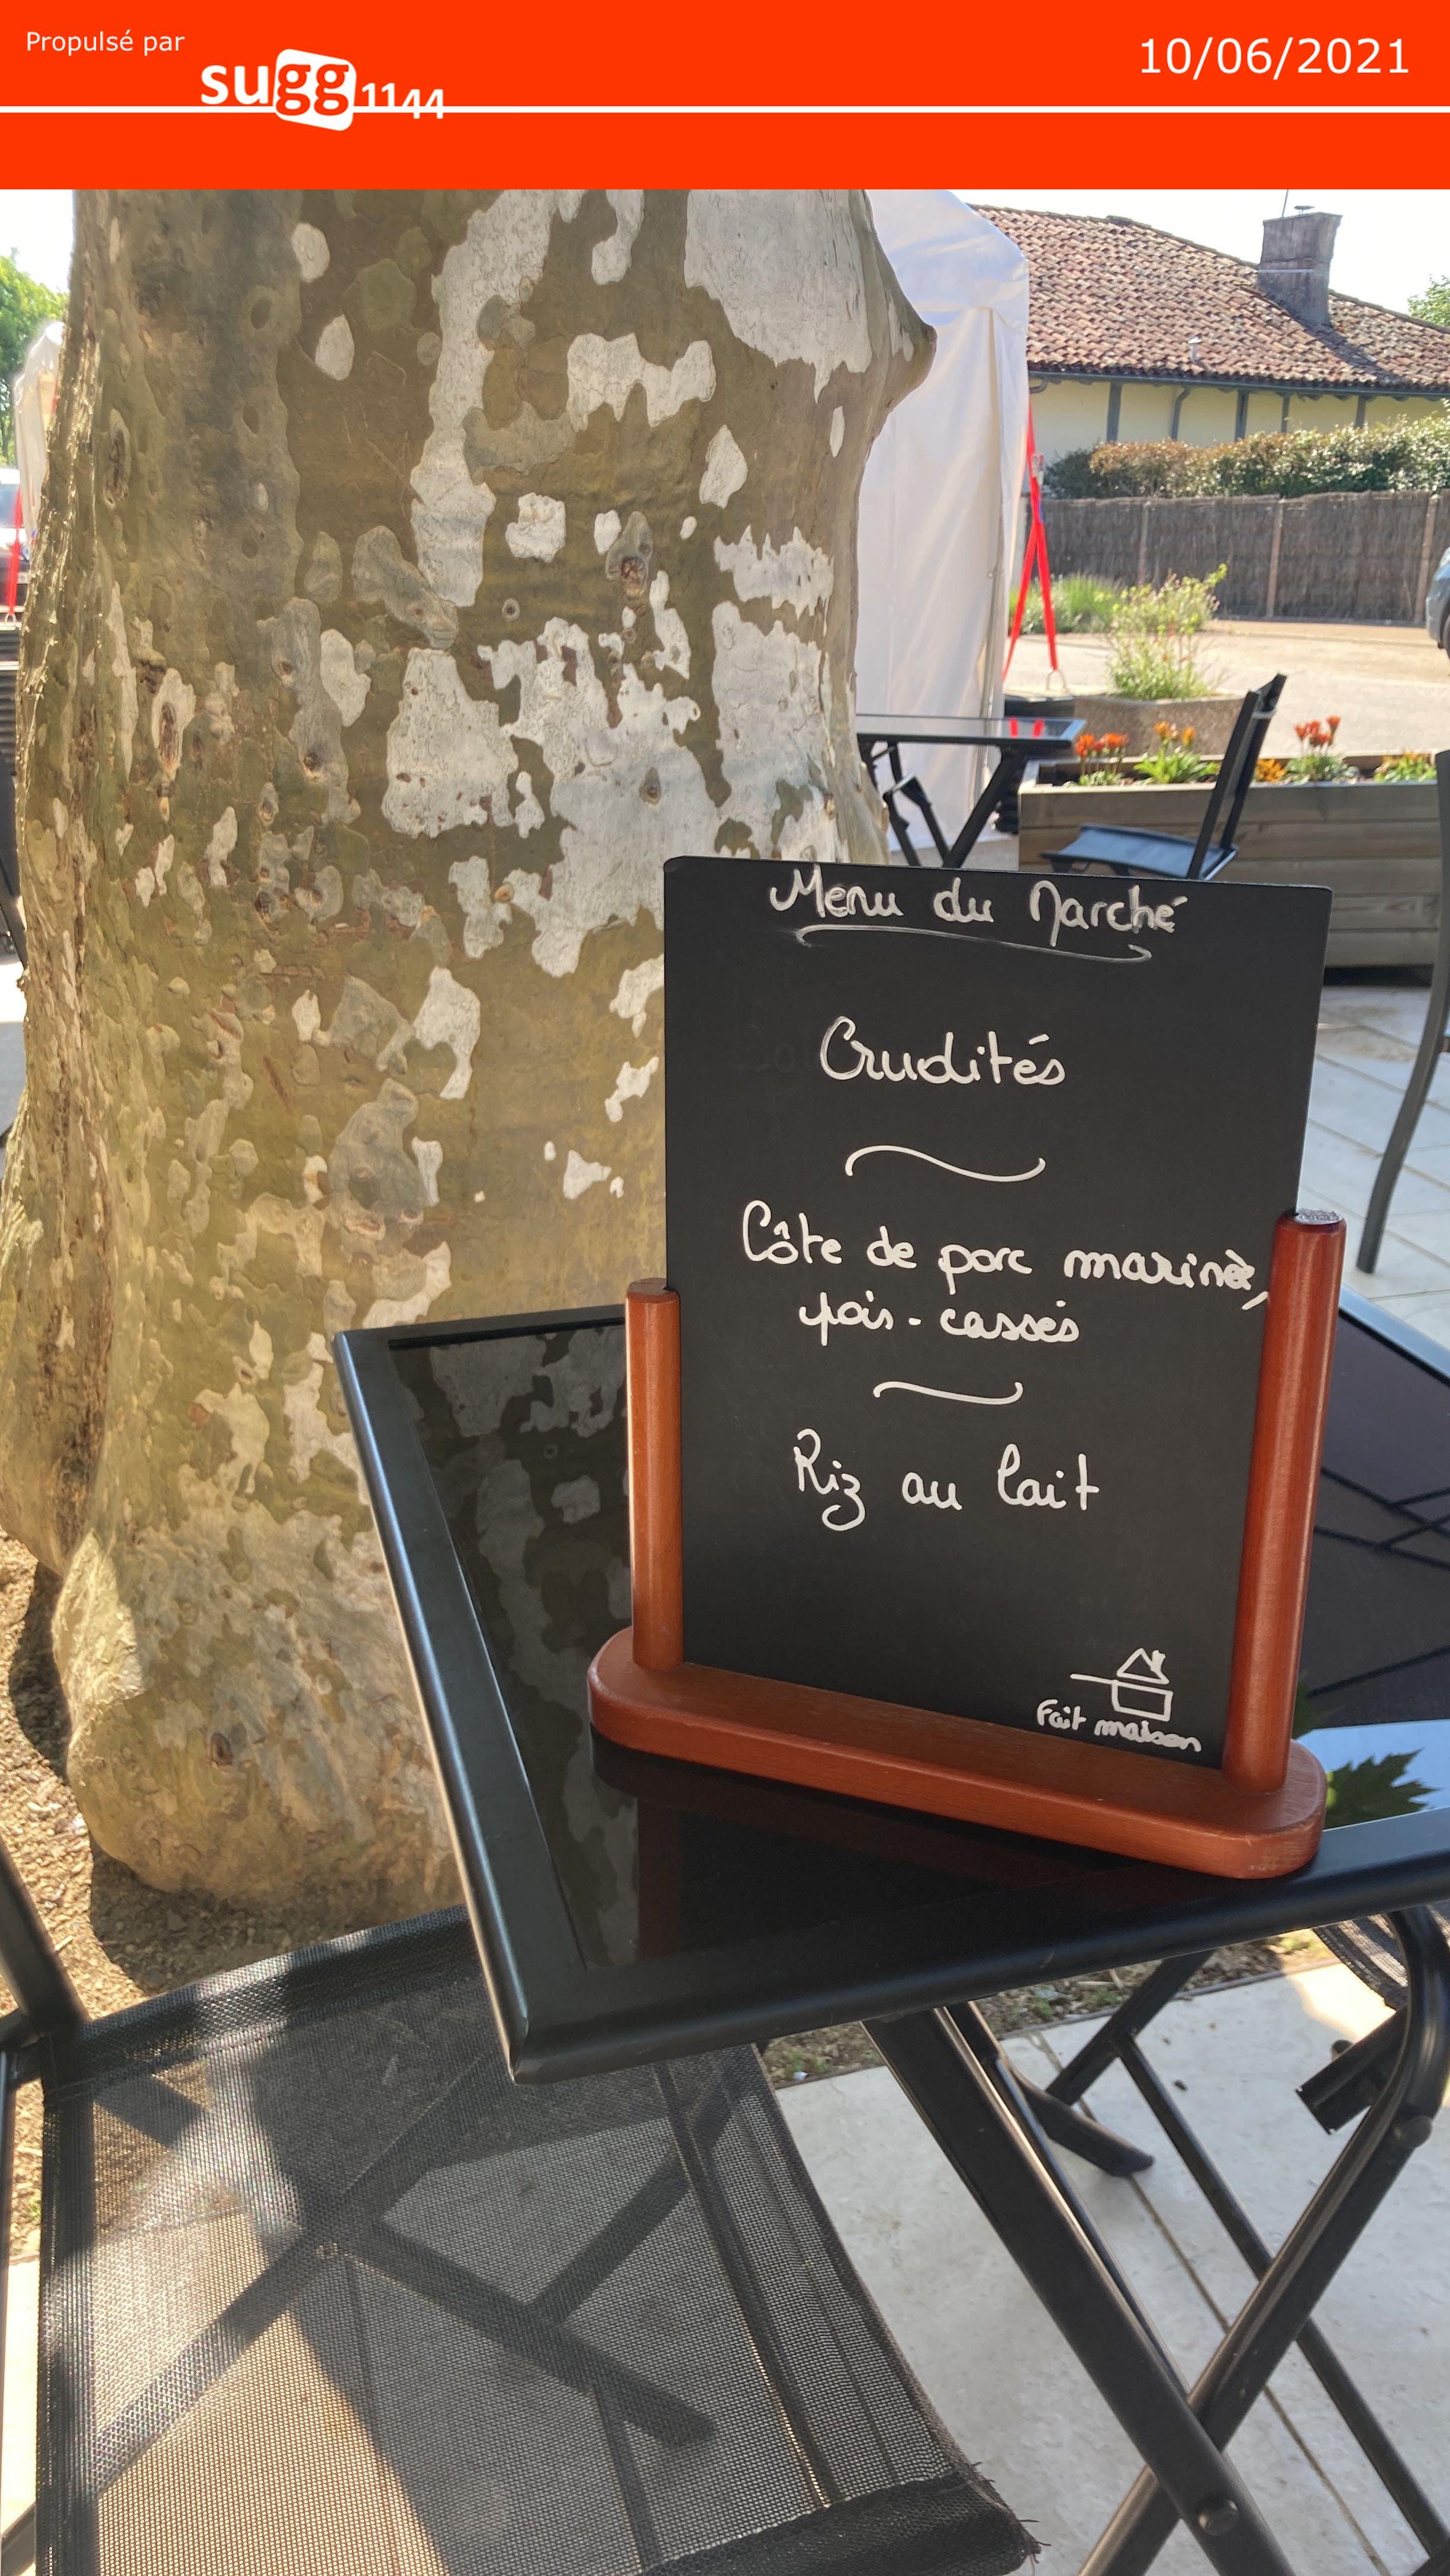 Propulsé par
sugg1144
10/06/2021
Menu du Marché
Crudités
Côte de porc marinée,
pois-cassés
Riz au lait
Fait maison